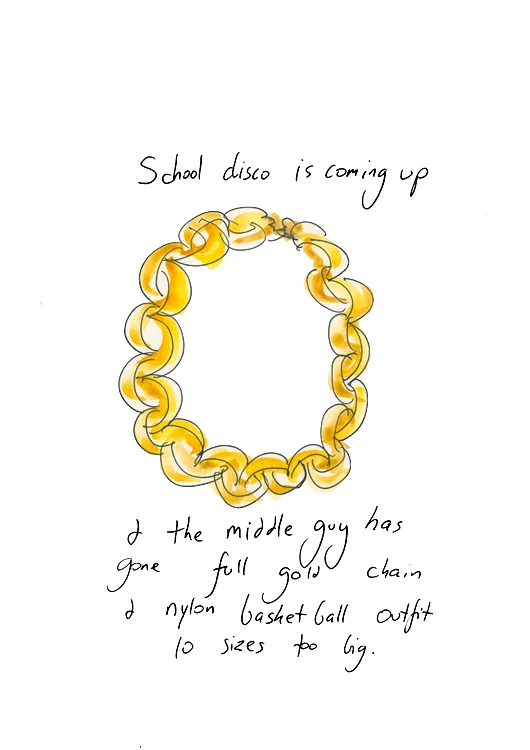 School disco is coming up
& the middle guy has
gone full gold chain
& nylon basketball outfit
10 sizes too big.